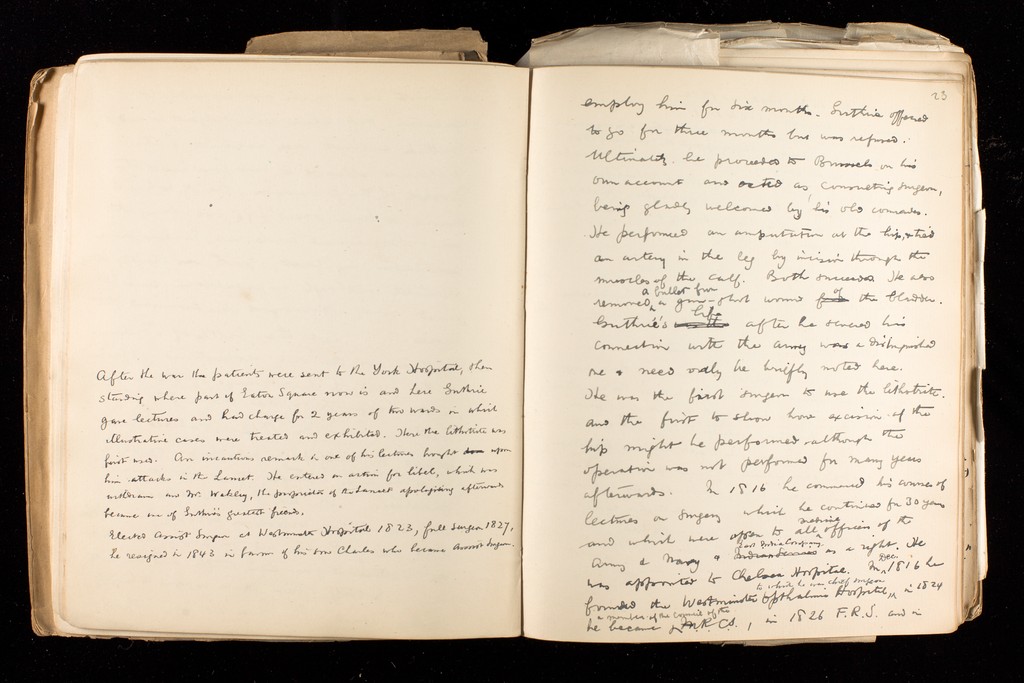 After the war the patients were sent to the York Hospital, then
standing where part of Eaton Square now is and here Guthrie
gave lectures and had charge for 2 years of two wards in which
illustrative cases were treated and exhibited. Here the lithotrite was
first used. An incautious remark in one of his lectures brought upon
him attacks in the Lancet. He entered an action for libel, which was
withdrawn and Mr. Wakley, the proprietor of the Lancet apologising afterwards
became one of Guthrie's greatest friends.
Elected Assist Surgeon at Westminster Hospital 1823, full Surgeon 1827,
he resigned in 1843 in favour of his son Charles who became Assist Surgeon.
23
employ him for six months. Guthrie offered
to go for three months but was refused.
Ultimately he proceeded to Brussels on his
own account and acted as consulting surgeon,
being gladly welcomed by his old comrades.
He performed an amputation at the hip, & tied
an artery in the leg by incision through the
muscles of the calf. Both succeeded. He also
a bullet from
removed a gun-shot wound of the bladder.
Guthrie's life after he severed his
connection with the army was a distinguished
one & need only be briefly noted here.
He was the first surgeon to use the lithotrite.
and the first to show how excision of the
hip might be performed, although the
operation was not performed for many years
afterwards. In 1816 he commenced his course of
lectures on Surgery which he continued for 30 years
and which were open to all officers of the
Army & Navy & East India Company as a right. He
was appointed to Chelsea Hospital. In Decr. 1816 he
to which he was chief surgeon
founded the Westminster Ophthalmic Hospital, in 1824
a member of the council of the
he became R.C.S., in 1826 F.R.S. and in